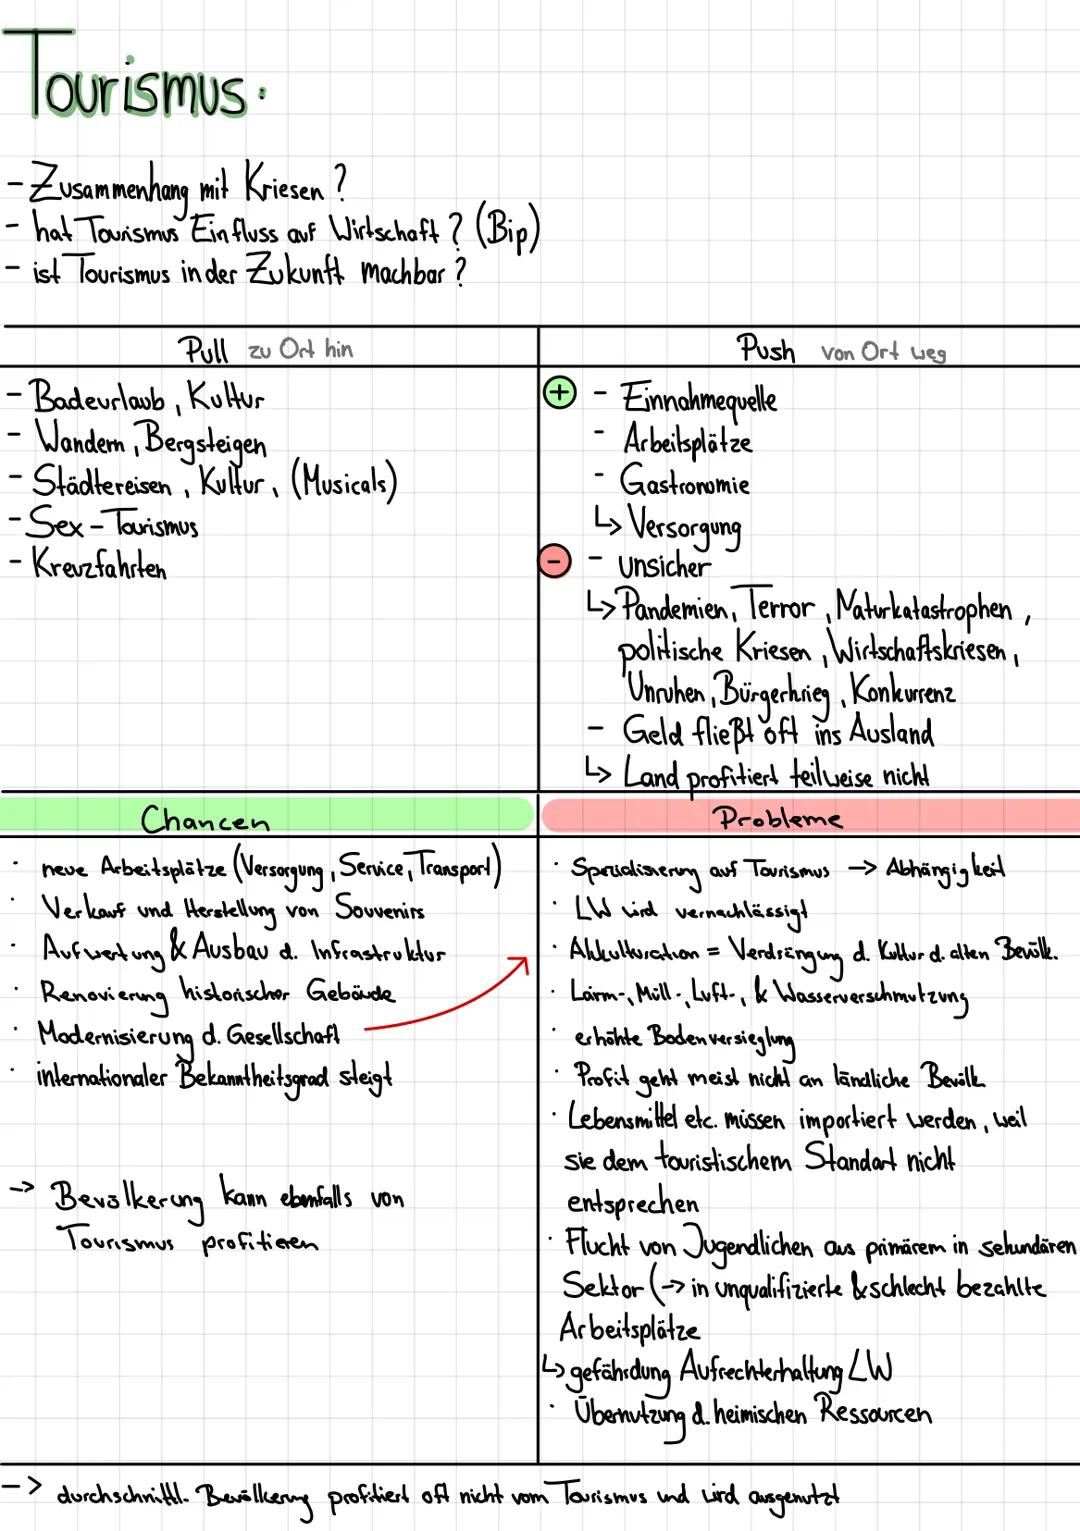 Tourismus.
- Zusammenhang mit Kriesen?
- hat Tourismus Einfluss auf Wirtschaft? (Bip)
- ist Tourismus in der Zukunft machbar?
Pull zu Ort hin
- Badeurlaub, Kultur
- Wandern, Bergsteigen
- Städtereisen, Kultur, (Musicals)
- Sex-Tourismus
- Kreuzfahrten
Push von Ort weg
+ - Einnahmequelle
- Arbeitsplätze
- Gastronomie
↳ Versorgung
- - unsicher
↳ Pandemien, Terror, Naturkatastrophen,
politische Kriesen, Wirtschaftskriesen,
Unruhen, Bürgerkrieg, Konkurrenz
- Geld fließt oft ins Ausland
↳ Land profitiert teilweise nicht
Chancen
· neue Arbeitsplätze (Versorgung, Service, Transport)
· Verkauf und Herstellung von Souvenirs
· Aufwertung & Ausbau d. Infrastruktur
· Renovierung historischer Gebäude
· Modernisierung d. Gesellschaft
· internationaler Bekanntheitsgrad steigt
-> Bevölkerung kann ebenfalls von
Tourismus profitieren
Probleme
· Spezialisierung auf Tourismus -> Abhängigkeit
· LW wird vernachlässigt
· Akkulturation = Verdrängung d. Kultur d. alten Bevölk.
· Lärm-, Müll-, Luft-, & Wasserverschmutzung
· erhöhte Bodenversieglung
· Profit geht meist nicht an ländliche Bevölk.
· Lebensmittel etc. müssen importiert werden, weil
sie dem touristischem Standart nicht
entsprechen
· Flucht von Jugendlichen aus primärem in sekundären
Sektor (-> in unqualifizierte & schlecht bezahlte
Arbeitsplätze
↳ gefährdung Aufrechterhaltung LW
· Übernutzung d. heimischen Ressourcen
-> durchschnittl. Bevölkerung profitiert oft nicht vom Tourismus und wird ausgenutzt